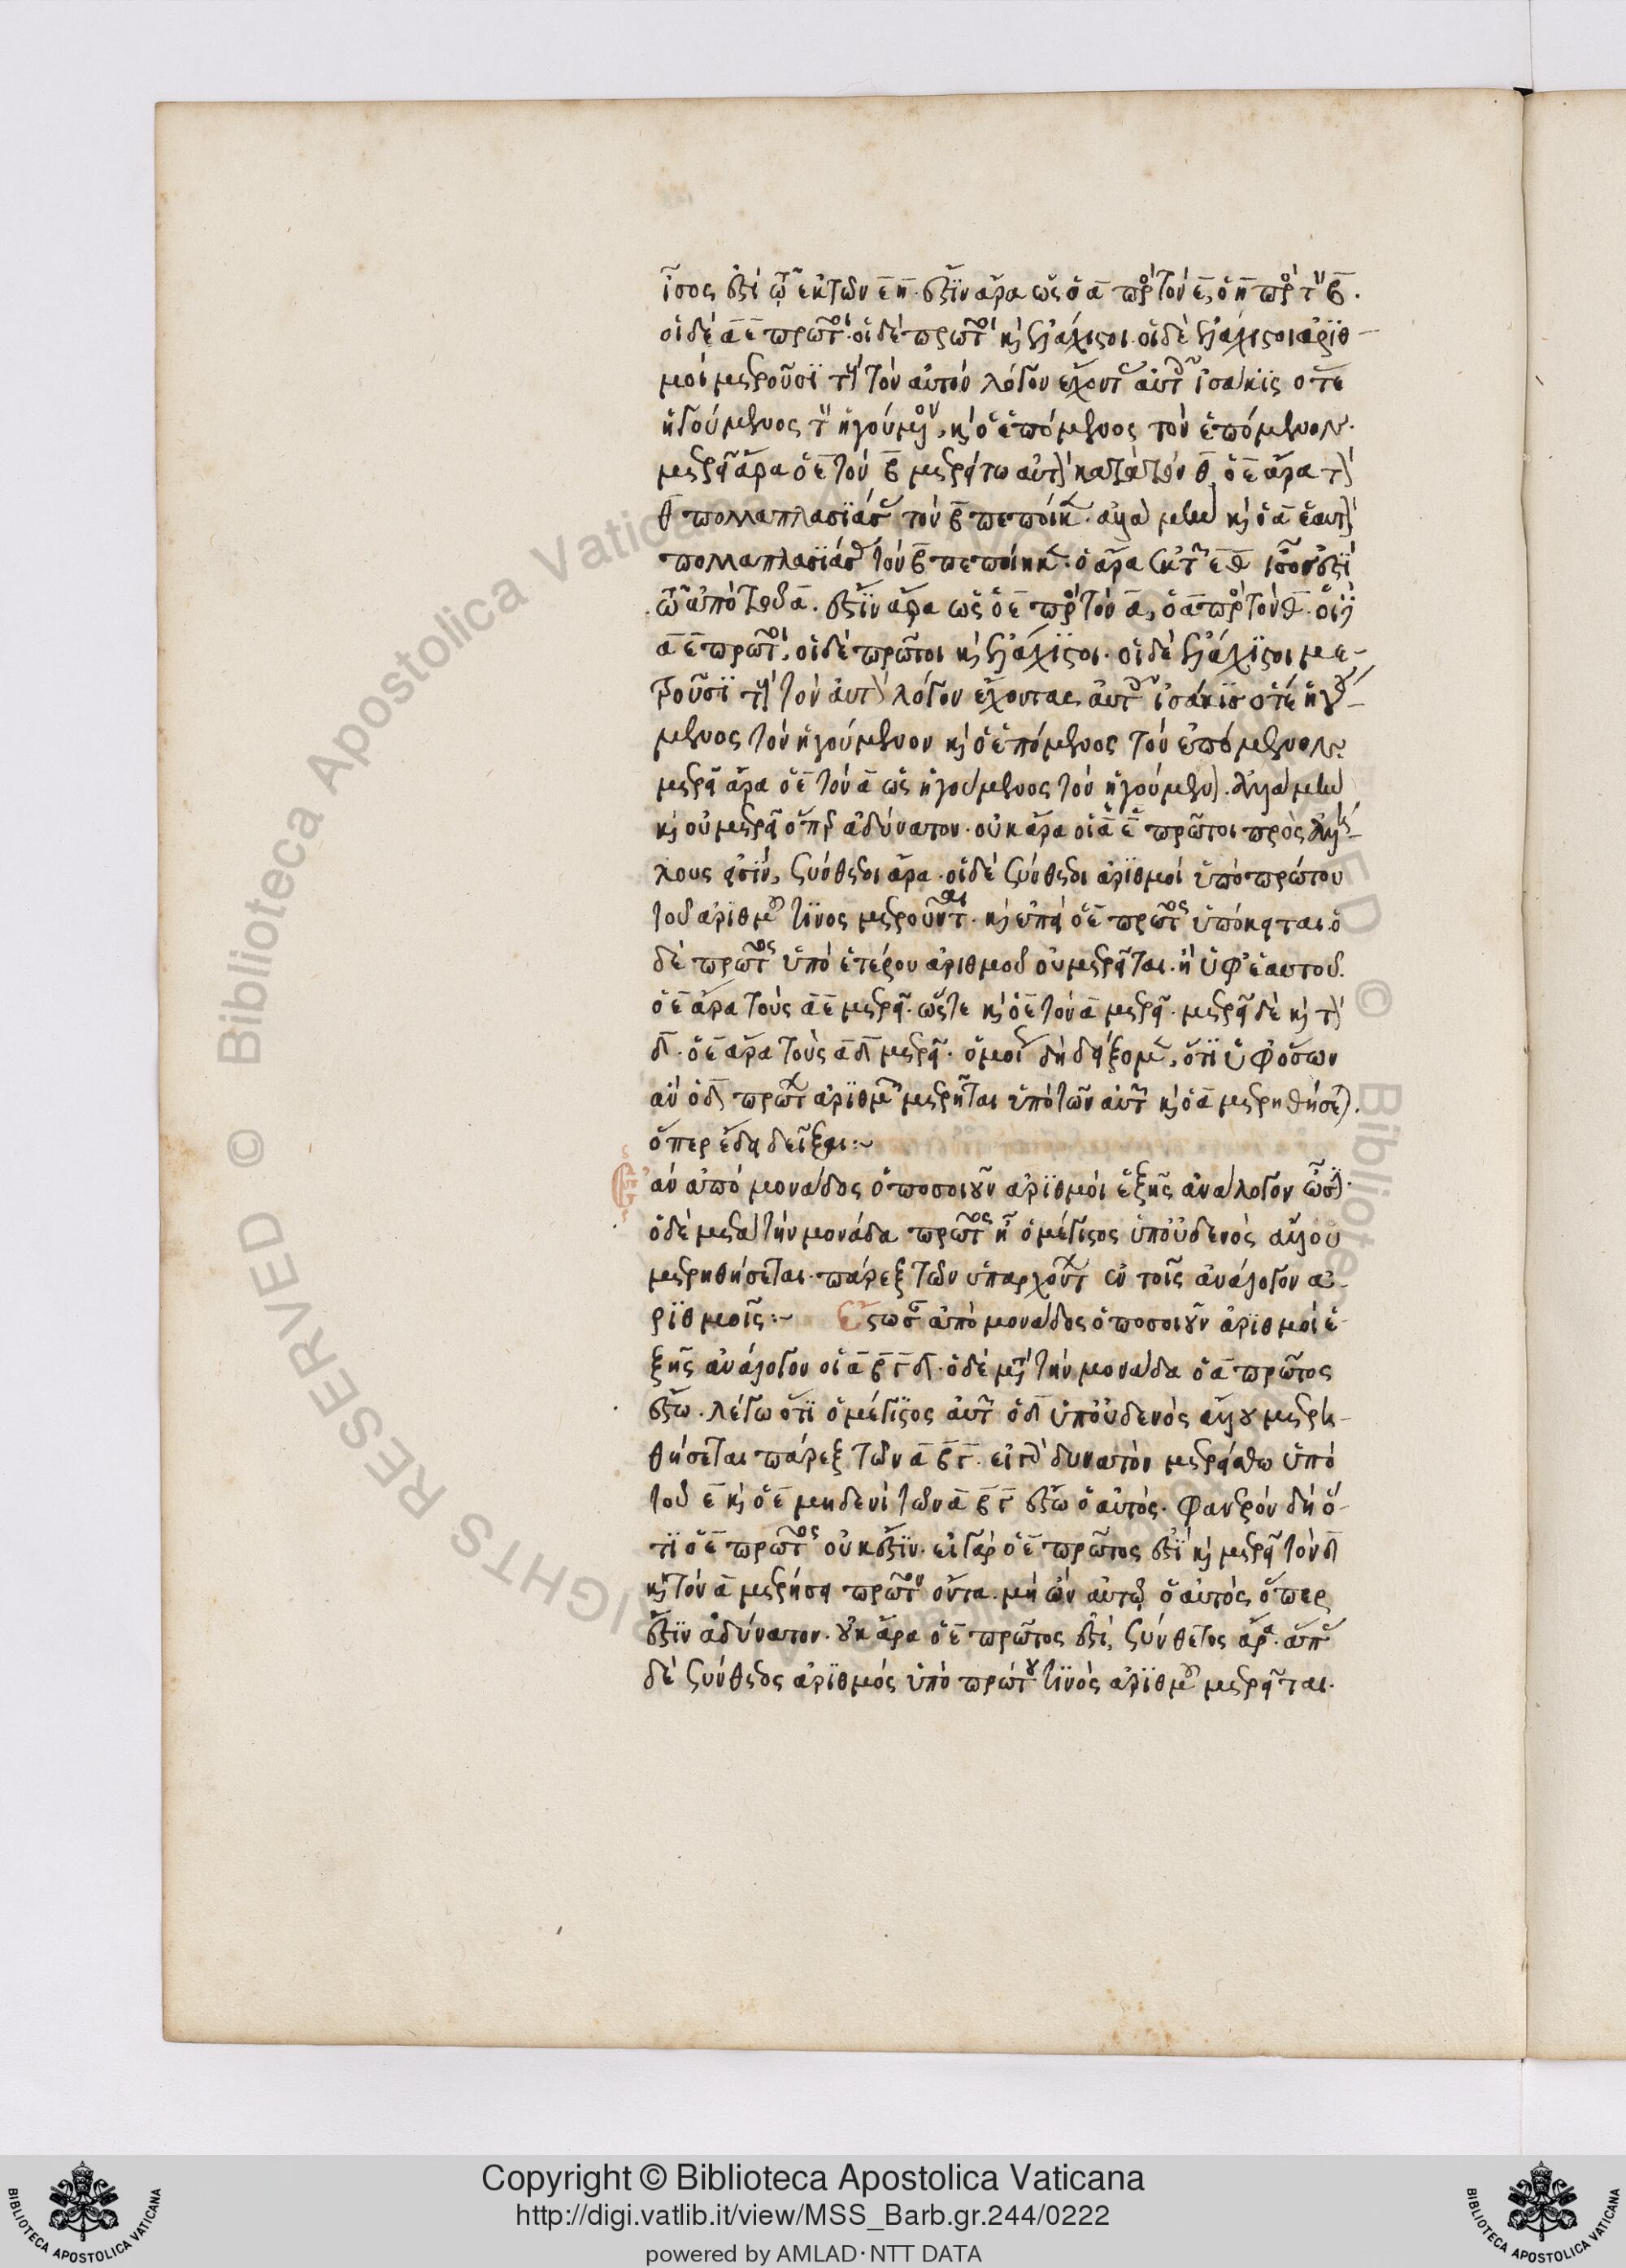 ἴσος ἐστὶ τῷ ἐκ τῶν ε̅ η̅. ἔστιν ἄρα ὡς ὁ α̅ πρὸς τὸν ε̅, ὁ η̅ πρὸς τὸν β̅.
οἱ δὲ α̅ ε̅ πρῶτοι. οἱ δὲ πρῶτοι καὶ ἐλάχιστοι. οἱ δὲ ἐλάχιστοι ἀριθ-
μοὶ μετροῦσι τοὺς τὸν αὐτὸν λόγον ἔχοντας αὐτοῖς ἰσάκις ὅ τε
ἡγούμενος τὸν ἡγούμενον, καὶ ὁ ἑπόμενος τὸν ἑπόμενον.
μετρεῖ ἄρα ὁ ε̅ τὸν β̅ μετρείτω αὐτὸν κατὰ τὸν θ̅. ὁ ε̅ ἄρα τὸν
θ̅ πολλαπλασιάσας τὸν β̅ πεποίηκεν. ἀλλὰ μὴν καὶ ὁ α̅ ἑαυτὸν
πολλαπλασιάσας τὸν β̅ πεποίηκεν. ὁ ἄρα ἐκ τῶν ε̅ θ̅ ἴσος ἐστὶ
τῷ ἀπὸ τοῦ α̅. ἔστιν ἄρα ὡς ὁ ε̅ πρὸς τὸν α̅, ὁ α̅ πρὸς τὸν θ̅. οἱ δὲ
α̅ ε̅ πρῶτοι, οἱ δὲ πρῶτοι καὶ ἐλάχιστοι. οἱ δὲ ἐλάχιστοι με-
τροῦσι τοὺς τὸν αὐτὸν λόγον ἔχοντας αὐτοῖς ἰσάκις ὅ τε ἡγού-
μενος τὸν ἡγούμενον καὶ ὁ ἑπόμενος τὸν ἑπόμενον.
μετρεῖ ἄρα ὁ ε̅ τὸν α̅ ὡς ἡγούμενος τὸν ἡγούμενον. ἀλλὰ μὴν
καὶ οὐ μετρεῖ ὅπερ ἀδύνατον. οὐκ ἄρα οἱ α̅ ε̅ πρῶτοι πρὸς ἀλλή-
λους εἰσίν, σύνθετοι ἄρα. οἱ δὲ σύνθετοι ἀριθμοὶ ὑπὸ πρώτου
τοῦ ἀριθμοῦ τινος μετροῦνται. καὶ ἐπεὶ ὁ ε̅ πρῶτος ὑπόκειται. ὁ
δὲ πρῶτος ὑπὸ ἑτέρου ἀριθμοῦ οὐ μετρεῖται. ἢ ὑφ' ἑαυτοῦ.
ὁ ε̅ ἄρα τοὺς α̅ ε̅ μετρεῖ. ὥστε καὶ ὁ ε̅ τὸν α̅ μετρεῖ. μετρεῖ δὲ καὶ τὸν
δ̅. ὁ ε̅ ἄρα τοὺς α̅ δ̅ μετρεῖ. ὁμοίως δὴ δείξομεν, ὅτι ὑφ' ὅσων
ἂν ὁ δ̅ πρώτων ἀριθμῶν μετρῆται ὑπὸ τῶν αὐτῶν καὶ ὁ α̅ μετρηθήσεται.
ὅπερ ἔδει δεῖξαι:~
Ἐὰν ἀπὸ μονάδος ὁποσοιοῦν ἀριθμοὶ ἑξῆς ἀνάλογον ὦσιν.
ὁ δὲ μετὰ τὴν μονάδα πρῶτος ᾖ ὁ μέγιστος ὑπ' οὐδενὸς ἄλλου
μετρηθήσεται. πάρεξ τῶν ὑπαρχόντων ἐν τοῖς ἀνάλογον ἀ-
ριθμοῖς:~ Ἔστωσαν ἀπὸ μονάδος ὁποσοιοῦν ἀριθμοὶ ἑ-
ξῆς ἀνάλογον οἱ α̅ β̅ γ̅ δ̅. ὁ δὲ μετὰ τὴν μονάδα ὁ α̅ πρῶτος
ἔστω. λέγω ὅτι ὁ μέγιστος αὐτῶν ὁ δ̅ ὑπ' οὐδενὸς ἄλλου μετρη-
θήσεται πάρεξ τῶν α̅ β̅ γ̅. εἰ γὰρ δυνατὸν μετρείσθω ὑπὸ
τοῦ ε̅ καὶ ὁ ε̅ μηδενὶ τῶν α̅ β̅ γ̅ ἔστω ὁ αὐτός. φανερὸν δὴ ὅ-
τι ὁ ε̅ πρῶτος οὐκ ἔστιν. εἰ γὰρ ὁ ε̅ πρῶτος ἐστὶ καὶ μετρεῖ τὸν δ̅
καὶ τὸν α̅ μετρήσει πρῶτον ὄντα. μὴ ὢν αὐτῷ ὁ αὐτός, ὅπερ
ἐστὶν ἀδύνατον. οὐκ ἄρα ὁ ε̅ πρῶτος ἐστί, σύνθετος ἄρα. ἅπας
δὲ σύνθετος ἀριθμὸς ὑπὸ πρώτου τινὸς ἀριθμοῦ μετρεῖται.
Copyright © Biblioteca Apostolica Vaticana
http://digi.vatlib.it/view/MSS_Barb.gr.244/0222
powered by AMLAD·NTT DATA